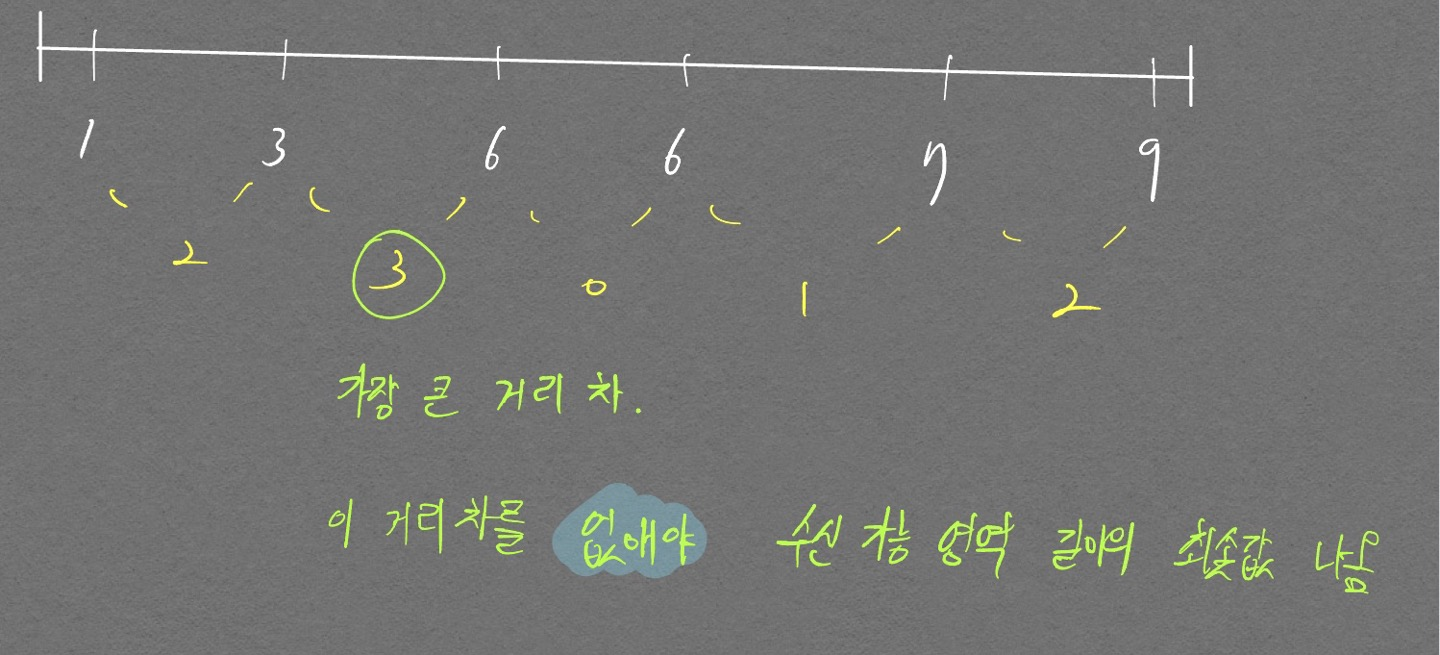 1 3 6 6 7 9
2 3 0 1 2
가장 큰 거리 차.
이 거리차를 없애야 수신 가능 영역 길이의 최솟값 나옴